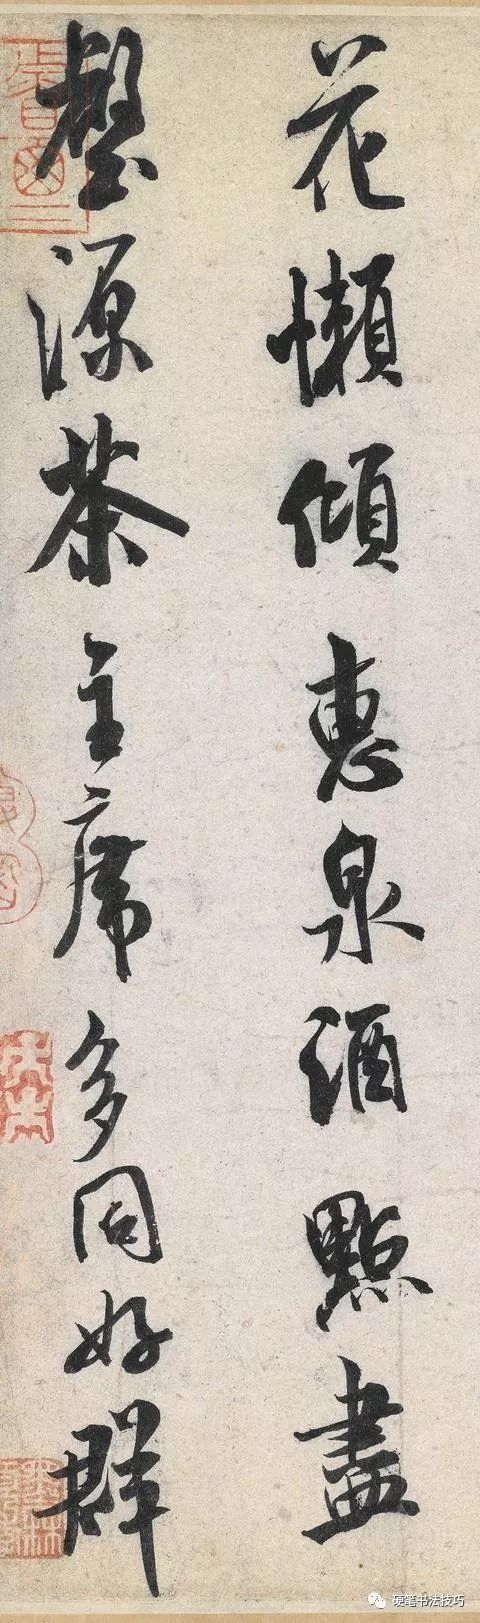 花懶傾惠泉酒點盡
壑源茶主席多同好群
硬笔书法技巧